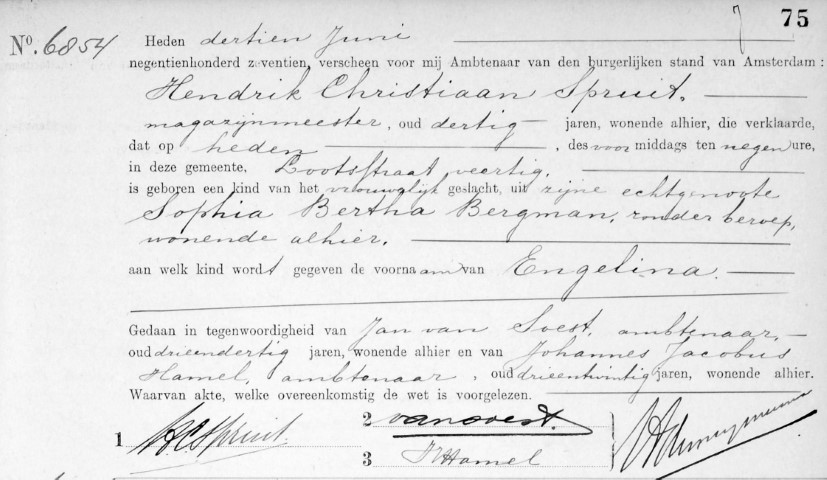 75
Nº. 6854 Heden dertien Juni
negentienhonderd zeventien, verscheen voor mij Ambtenaar van den burgerlijken stand van Amsterdam:
Hendrik Christiaan Spruit,
magazijnmeester, oud dertig jaren, wonende alhier, die verklaarde,
dat op heden, des voormiddags ten negen ure,
in deze gemeente, Lootsstraat veertig,
is geboren een kind van het vrouwelijk geslacht, uit zijne echtgenoote
Sophia Bertha Bergman, zonder beroep,
wonende alhier.
aan welk kind wordt gegeven de voornaam van Engelina.
Gedaan in tegenwoordigheid van Jan van Soest, ambtenaar,
oud drieendertig jaren, wonende alhier en van Johannes Jacobus
Hamel, ambtenaar, oud drieentwintig jaren, wonende alhier.
Waarvan akte, welke overeenkomstig de wet is voorgelezen.
1 HCSpruit. 2 van Soest.
3 JJHamel